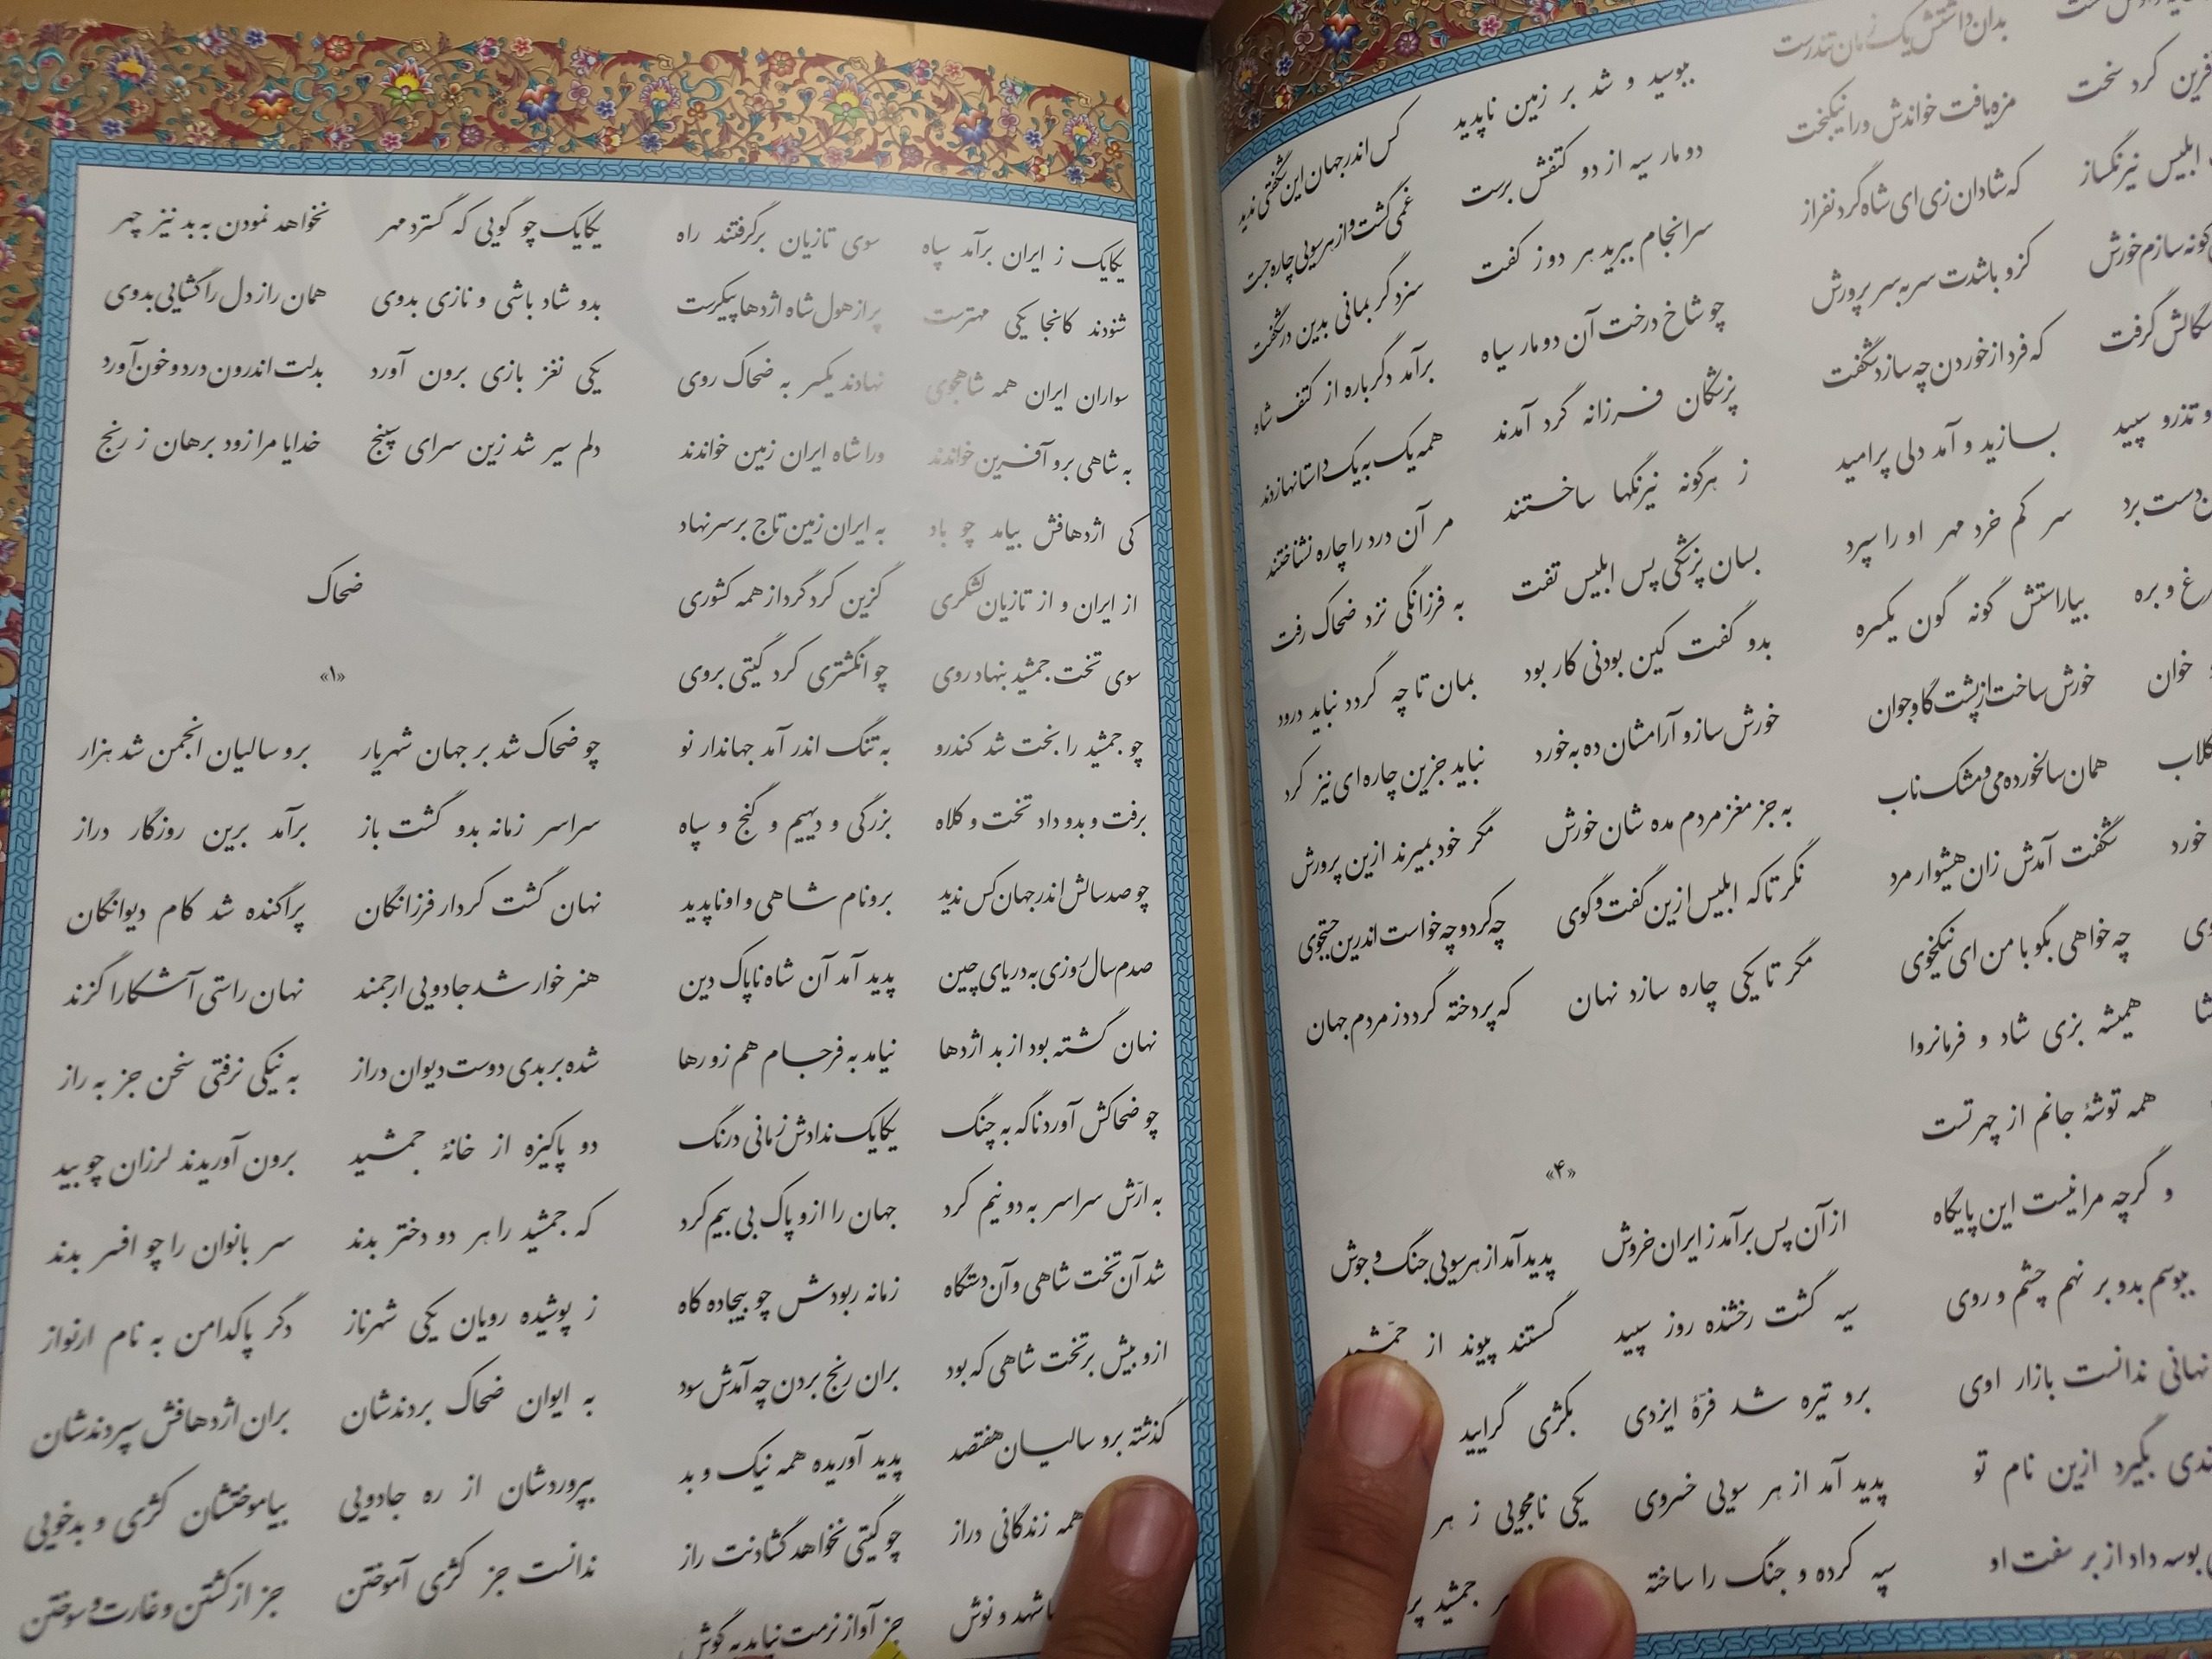 بدان داشتش یک زمان تندرست
آفرین کرد سخت مزه یافت خواندش ورا نیکبخت
ابلیس نیرنگساز که شادان زی ای شاه گردنفراز
گونه سازم خورش کزو باشدت سر به سر پرورش
سگالش گرفت که فردا ز خوردن چه سازد شگفت
و تذرو سپید بسازید و آمد دلی پرامید
دست برد سر کم خرد مهر او را سپرد
و بره بیاراستش گونه گون یکسره
خوان خورش ساخت از پشت گاو جوان
گلاب همان سالخورده می و مشک ناب
خورد شگفت آمدش زان هشیوار مرد
چه خواهی بگو با من ای نیکخوی
همیشه بزی شاد و فرمانروا
همه توشهٔ جانم از چهر تست
و گرچه مرا نیست این پایگاه
ببوسم بدو بر نهم چشم و روی
نهانی ندانست بازار اوی
بگیرد ازین نام تو
بوسه داد از بر سفت او
ببوسید و شد بر زمین ناپدید کس اندر جهان این شگفتی ندید
دو مار سیه از دو کتفش برست غمی گشت و از هر سویی چاره جست
سرانجام ببرید هر دو ز کفت سزد گر بمانی بدین در شگفت
چو شاخ درخت آن دو مار سیاه برآمد دگرباره از کتف شاه
پزشکان فرزانه گرد آمدند همه یک به یک داستانها زدند
ز هرگونه نیرنگها ساختند مر آن درد را چاره نشناختند
بسان پزشکی پس ابلیس تفت به فرزانگی نزد ضحاک رفت
بدو گفت کین بودنی کار بود بمان تا چه گردد نباید درود
خورش ساز و آرامشان ده به خورد نباید جزین چاره‌ای نیز کرد
به جز مغز مردم مده شان خورش مگر خود بمیرند ازین پرورش
نگر تا که ابلیس ازین گفت و گوی چه کرد و چه خواست اندرین جستجوی
مگر تا یکی چاره سازد نهان که پردخته گردد ز مردم جهان
«۴»
از آن پس برآمد ز ایران خروش پدید آمد از هر سویی جنگ و جوش
سیه گشت رخشنده روز سپید گسستند پیوند از جمّشید
برو تیره شد فرّهٔ ایزدی بکژی گرایید
پدید آمد از هر سویی خسروی یکی نامجویی ز هر
سپه کرده و جنگ را ساخته جمشید
یکایک ز ایران برآمد سپاه سوی تازیان برگرفتند راه
شنودند کانجا یکی مهترست پر از هول شاه اژدها پیکرست
سواران ایران همه شاهجوی نهادند یکسر به ضحاک روی
به شاهی برو آفرین خواندند ورا شاه ایران زمین خواندند
کی اژدهافش بیامد چو باد به ایران زمین تاج بر سر نهاد
از ایران و از تازیان لشکری گزین کرد گرد از همه کشوری
سوی تخت جمشید بنهاد روی چو انگشتری کرد گیتی بروی
چو جمشید را بخت شد کندرو به تنگ اندر آمد جهاندار نو
برفت و بدو داد تخت و کلاه بزرگی و دیهیم و گنج و سپاه
چو صد سالش اندر جهان کس ندید برو نام شاهی و او ناپدید
صدم سال روزی به دریای چین پدید آمد آن شاه ناپاک دین
نهان گشته بود از بد اژدها نیامد به فرجام هم زو رها
چو ضحاکش آورد ناگه به چنگ یکایک ندادش زمانی درنگ
به ارّش سراسر به دو نیم کرد جهان را ازو پاک بی بیم کرد
شد آن تخت شاهی و آن دستگاه زمانه ربودش چو بیجاده کاه
ازو بیش بر تخت شاهی که بود بران رنج بردن چه آمدش سود
گذشته برو سالیان هفتصد پدید آوریده همه نیک و بد
همه زندگانی دراز چو گیتی نخواهد گشادنت راز
شهد و نوش جز آواز نرمت نیاید به گوش
یکایک چو گویی که گسترد مهر نخواهد نمودن به بد نیز چهر
بدو شاد باشی و نازی بدوی همان راز دل را گشایی بدوی
یکی نغز بازی برون آورد بدلت اندرون درد و خون آورد
دلم سیر شد زین سرای سپنج خدایا مرا زود برهان ز رنج
ضحاک
«۱»
چو ضحاک شد بر جهان شهریار برو سالیان انجمن شد هزار
سراسر زمانه بدو گشت باز برآمد برین روزگار دراز
نهان گشت کردار فرزانگان پراگنده شد کام دیوانگان
هنر خوار شد جادویی ارجمند نهان راستی آشکارا گزند
شده بر بدی دست دیوان دراز به نیکی نرفتی سخن جز به راز
دو پاکیزه از خانهٔ جمشید برون آوریدند لرزان چو بید
که جمشید را هر دو دختر بدند سر بانوان را چو افسر بدند
ز پوشیده رویان یکی شهرناز دگر پاکدامن به نام ارنواز
به ایوان ضحاک بردندشان بران اژدهافش سپردندشان
بپروردشان از ره جادویی بیاموختشان کژی و بدخویی
ندانست جز کژی آموختن جز از کشتن و غارت و سوختن